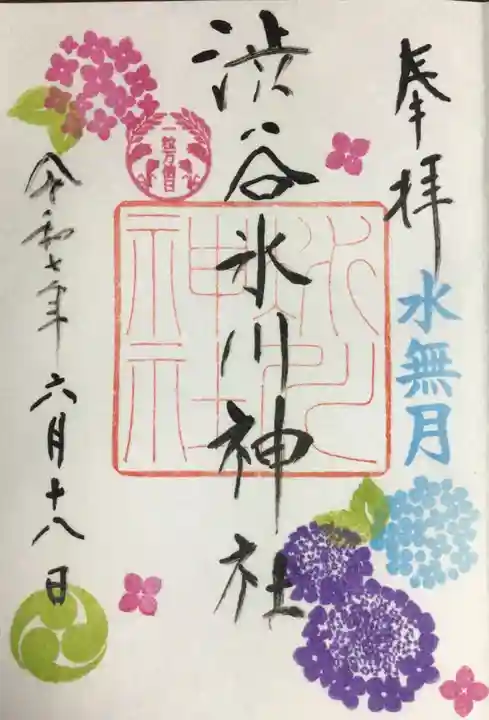 奉拝
水無月
渋谷氷川神社
一粒万倍日
氷川神社
令和七年六月十八日